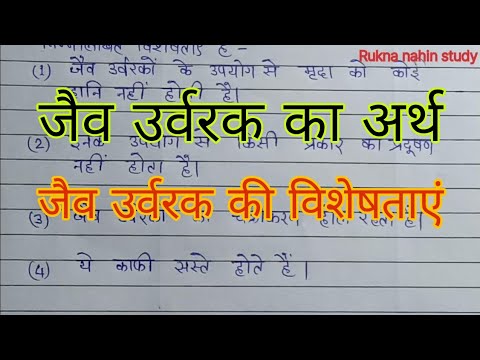 Rukna nahin study
विशेषताएं हैं -
(1) जैव उर्वरकों के उपयोग से मृदा को कोई
हानि नहीं होती है।
जैव उर्वरक का अर्थ
(2) इनके उपयोग से किसी प्रकार का प्रदूषण
नहीं होता है।
जैव उर्वरक की विशेषताएं
(3) होता रहता है।
(4) ये काफी सस्ते होते हैं।